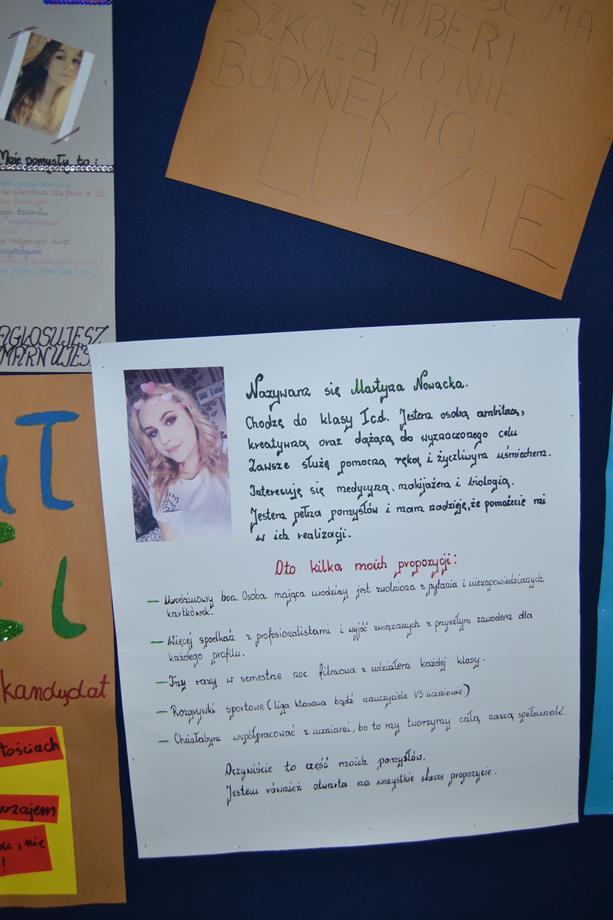 MA
HUBERT.
SZKOŁA TO NIE
BUDYNEK TO
LUDZIE
Moje pomysły to:
ZAGŁOSUJESZ
kandydat
Nazywam się Martyna Nowacka.
Chodzę do klasy I c.d. Jestem osobą ambitną,
kreatywną oraz dążącą do wyznaczonego celu
Zawsze służę pomocną ręką i życzliwym uśmiechem.
Interesuję się medycyną, makijażem i biologią.
Jestem pełna pomysłów i mam nadzieję, że pomożecie mi
w ich realizacji.
Oto kilka moich propozycji:
— Urodzinowy bon. Osoba mająca urodziny jest zwolniona z pytania i niezapowiedzianych
kartkówek.
— Więcej spotkań z profesjonalistami i wyjść związanych z przyszłym zawodem dla
każdego profilu.
— Trzy razy w semestrze noc filmowa z udziałem każdej klasy.
— Rozgrywki sportowe (liga klasowa bądź nauczyciele VS uczniowie)
— Chciałabym współpracować z uczniami, bo to my tworzymy całą naszą społeczność.
Oczywiście to część moich pomysłów.
Jestem również otwarta na wszystkie wasze propozycje.